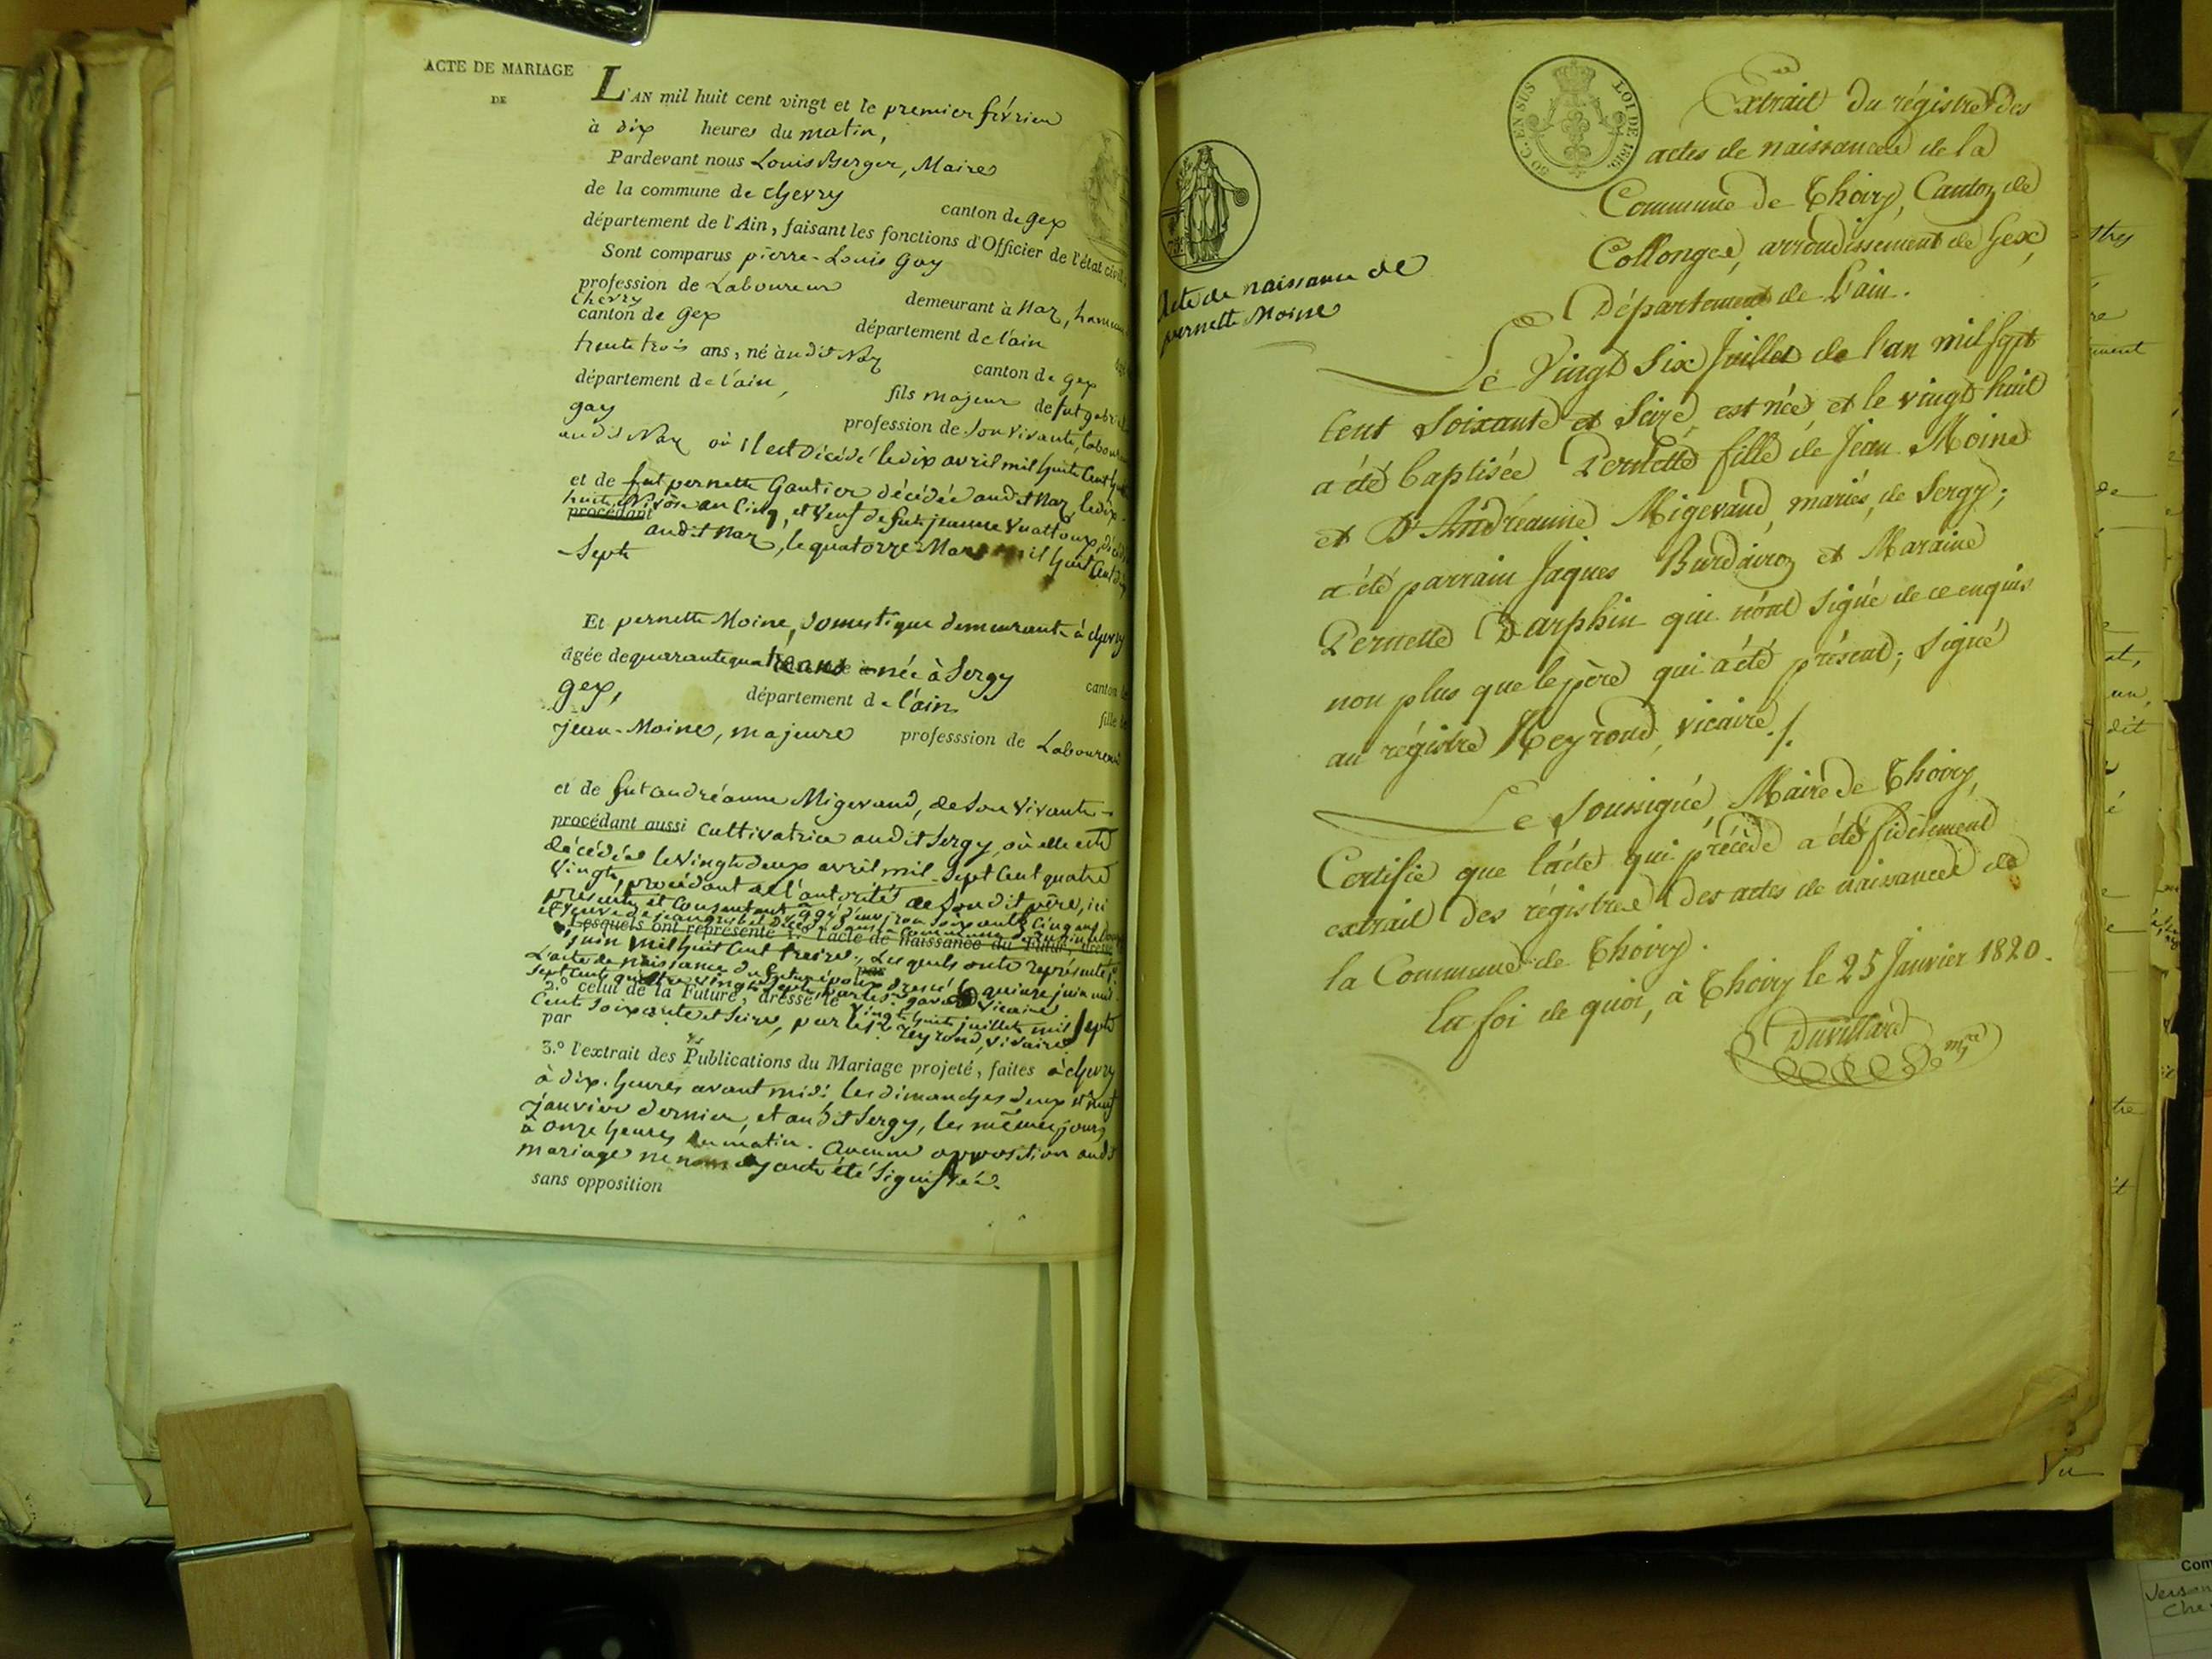 ACTE DE MARIAGE
DE
L'AN mil huit cent vingt et le premier février
à dix heures du matin,
Pardevant nous Louis Berger, Maire
de la commune de chevry canton de gex
département de l'Ain, faisant les fonctions d'Officier de l'état civil,
Sont comparus pierre-Louis Gay
profession de Laboureur demeurant à Naz, hameau
chevry
canton de gex département de l'ain
trente trois ans, né audit Naz canton de gex
département de l'ain, fils majeur de fut gabriel
gay profession de son vivant, labour
audit Naz où il est décédé le dix avril mil huit Cent
et de fut pernette Gautier décédée audit Naz, le dix-
huit Nivôse an Cinq, et Veuf de fut jeanne Vuattoux,
procédant
audit Naz, le quatorze Mars mil huit Cent
-Sept
Et pernette Moine, domestique demeurant à chevry
âgée de quarante quatre ans née à Sergy canton de
gex, département de l'ain fille de
jean-Moine, majeure professsion de Laboureur
et de fut andréanne Migevand, de son Vivant-
procédant aussi Cultivatrice audit Sergy, où elle est
décédée le Vingt deux avril mil-Sept Cent quatre
Vingt, procédant de l'autorité de son dit père, ici
présent, et Consentant, âgé d'environ soixante Cinq ans
et veuve de
Lesquels ont représenté 1.º l'acte de naissance du Futur, dressé
juin mil huit Cent treize., Lesquels ont représenté 1º
L'acte de Naissance du futur époux dressé le quinze juin mil
par
Sept Cent quatre Vingt Sept, par Vicaire
2.º celui de la Future, dressé le Vingt huit juillet mil Sept
Cent Soixante et Seize, par le Sr Reyrond, Vicaire
par
3.º l'extrait des Publications du Mariage projeté, faites à chevry
à dix heures avant midi les dimanches deux et neuf
janvier dernier, et audit Sergy, les mêmes jours
à onze heures du matin. Aucune opposition audit
mariage ne nous ayant été Signifiée.
sans opposition
50 C. EN SUS
LOI DE 1816.
Acte de naissance de
pernette Moine
Extrait du régistre des
actes de naissance de la
Commune de Thoiry, Canton de
Collonge, arrondissement de Gex,
Département de l'ain.
Le Vingt Six Juillet de l'an mil sept
cent Soixante et Seize, est née et le vingt huit
a été baptisée Pernette fille de Jean Moine
et D'Andréanne Migevand, mariés, de Sergy;
a été parrain Jaques Burdairoz et Maraine
Pernette Darphin qui n'ont signé de ce enquis
non plus que le père qui a été présent; Signé
au régistre Reyrond, vicaire./.
Le Soussigné, Maire de Thoiry,
Certifie que l'acte qui précède a été fidèlement
extrait des régistres des actes de naissance de
la Commune de Thoiry.
En foi de quoi, à Thoiry le 25 Janvier 1820.
Duvillard
mre
Vu